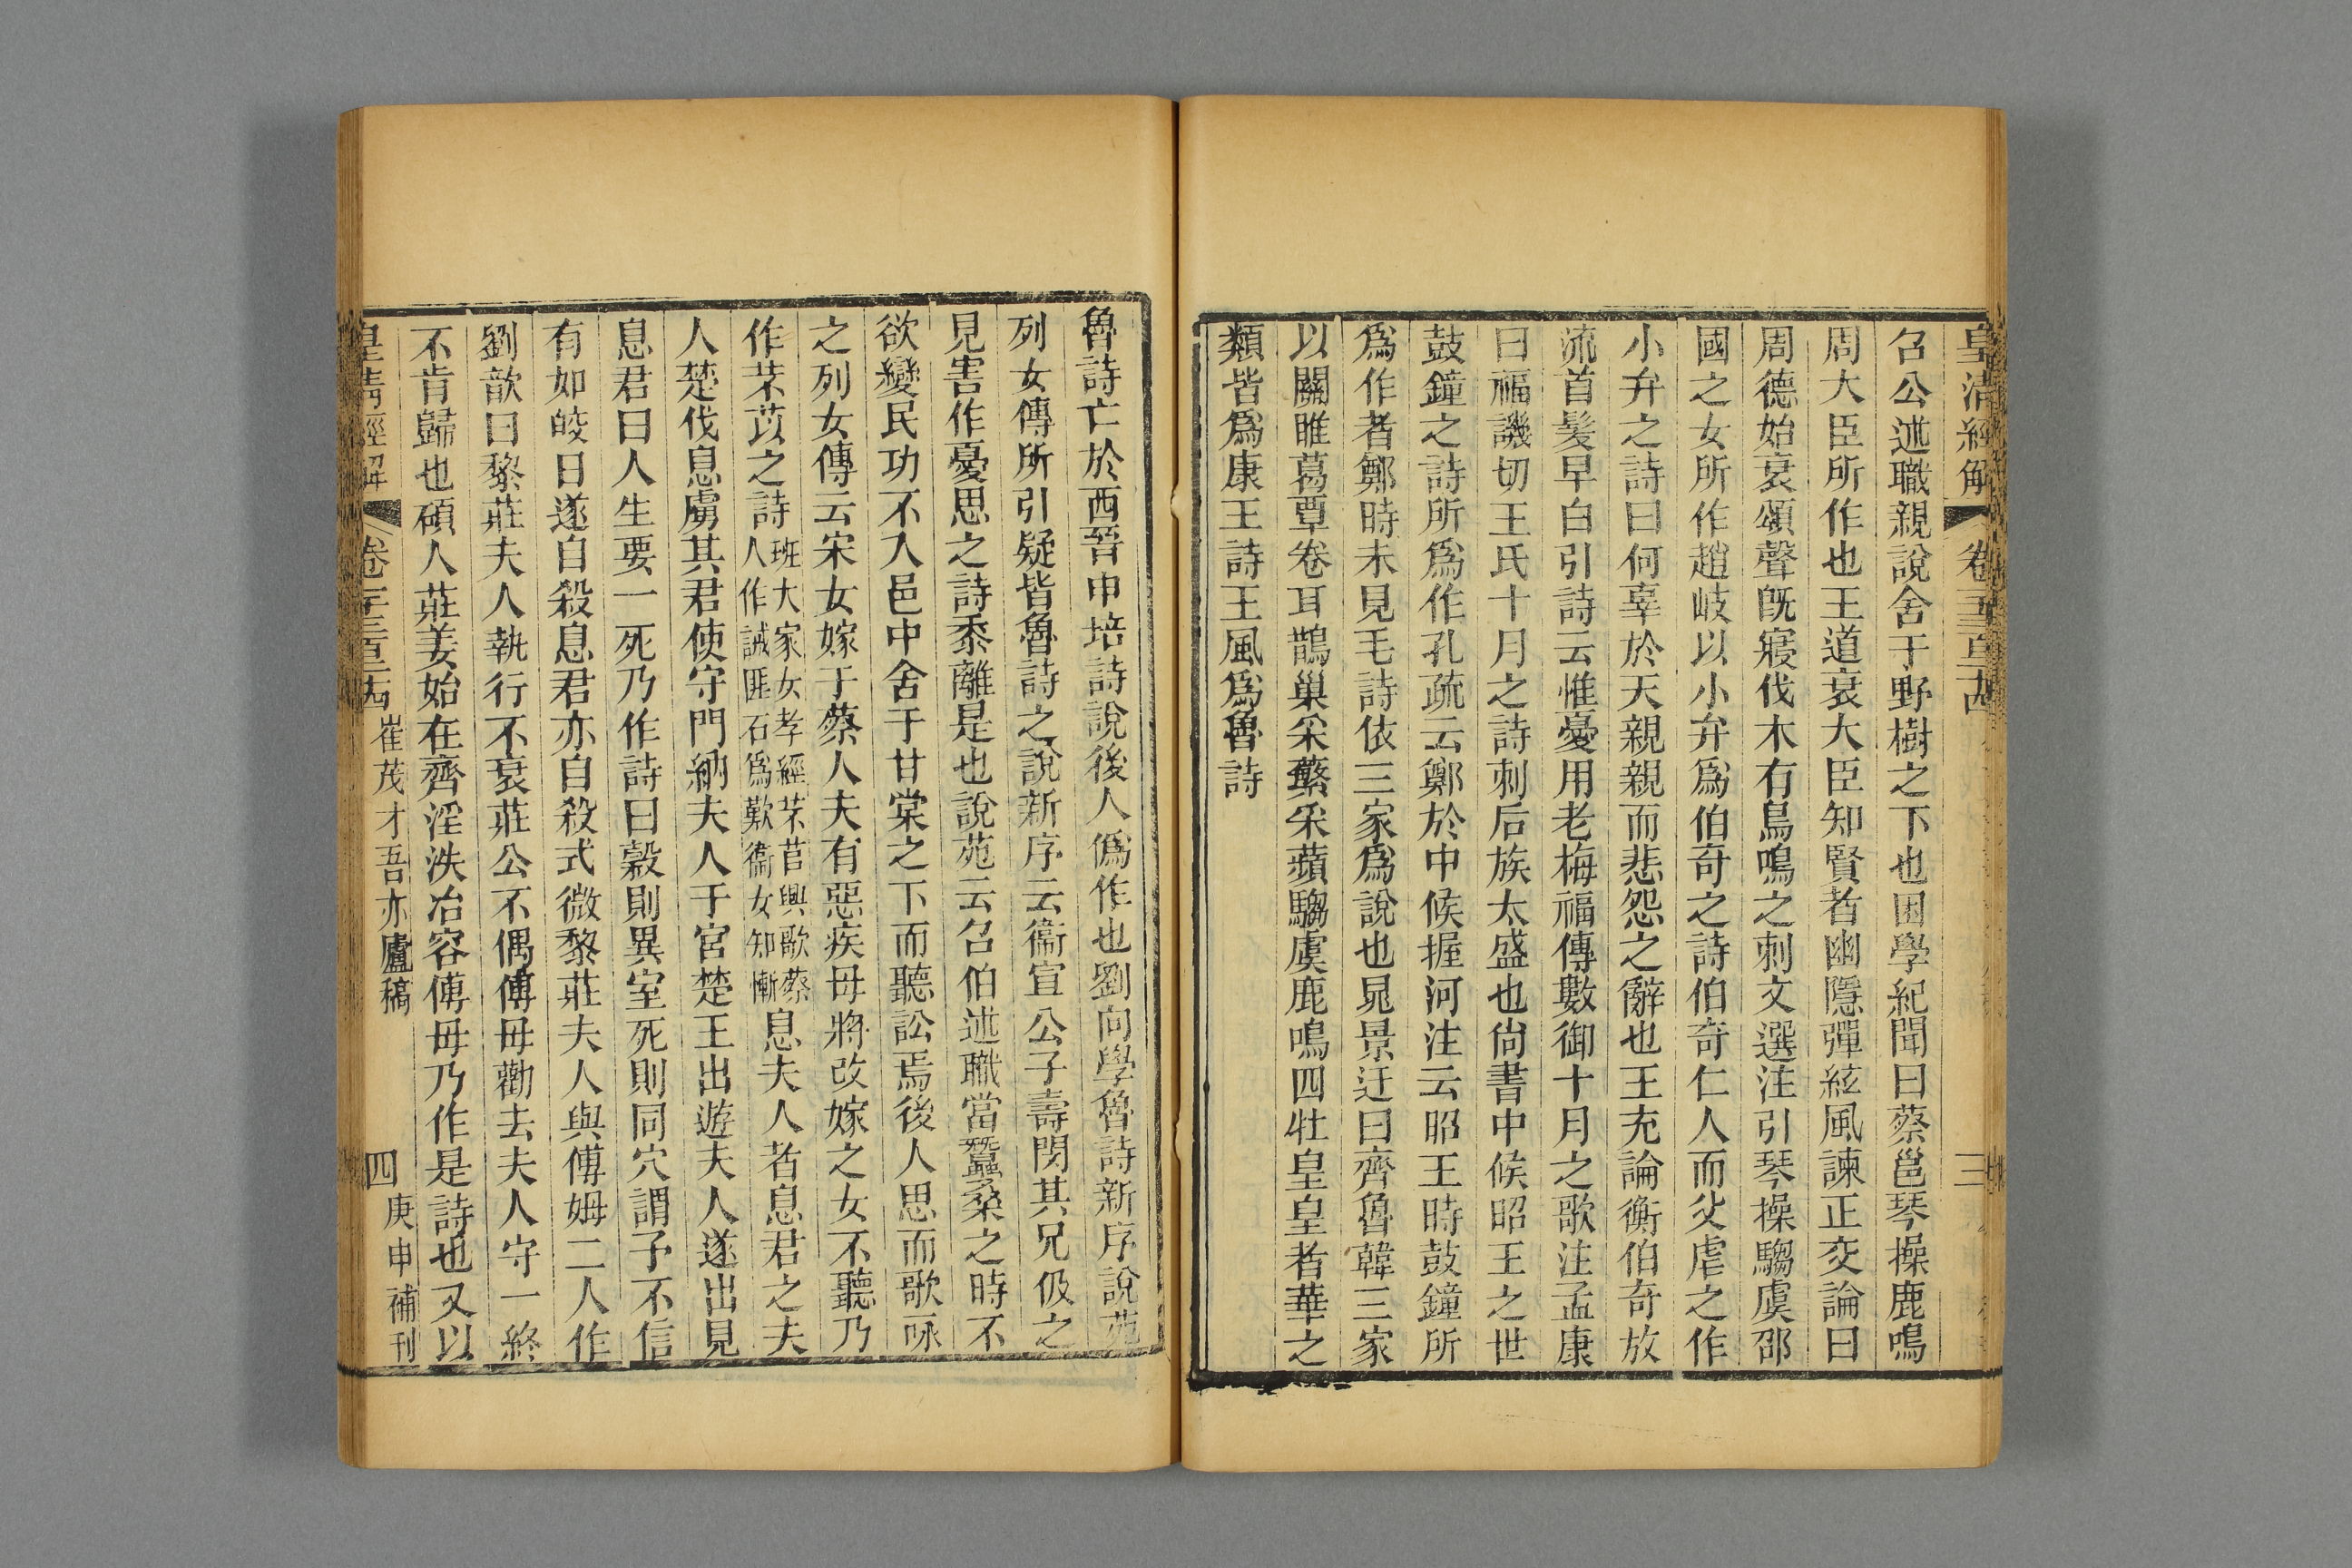 皇清經解
三
召公述職親說舍于野樹之下也困學紀聞曰蔡邕琴操鹿鳴
周大臣所作也王道衰大臣知賢者幽隱彈絃風諫正交論曰
周德始衰頌聲旣寢伐木有鳥鳴之刺文選注引琴操騶虞邵
國之女所作趙岐以小弁爲伯奇之詩伯奇仁人而父虐之作
小弁之詩曰何辜於天親親而悲怨之辭也王充論衡伯奇放
流首髮早白引詩云惟憂用老梅福傳數御十月之歌注孟康
曰福譏切王氏十月之詩刺后族太盛也尙書中候昭王之世
鼓鐘之詩所爲作孔疏云鄭於中候握河注云昭王時鼓鐘所
爲作者鄭時未見毛詩依三家爲說也晁景迂曰齊魯韓三家
以關雎葛覃卷耳鵲巢采蘩采蘋騶虞鹿鳴四牡皇皇者華之
類皆爲康王詩王風爲魯詩
魯詩亡於西晉申培詩說後人僞作也劉向學魯詩新序說苑
列女傳所引疑皆魯詩之說新序云衞宣公子壽閔其兄伋之
見害作憂思之詩黍離是也說苑云召伯述職當蠶桑之時不
欲變民功不入邑中舍于甘棠之下而聽訟焉後人思而歌咏
之列女傳云宋女嫁于蔡人夫有惡疾母將改嫁之女不聽乃
作芣苡之詩班大家女孝經芣苢興歌蔡人作誠匪石爲歎衞女知慚息夫人者息君之夫
人楚伐息虜其君使守門納夫人于宮楚王出遊夫人遂出見
息君曰人生要一死乃作詩曰穀則異室死則同穴謂予不信
有如皎日遂自殺息君亦自殺式微黎莊夫人與傅姆二人作
劉歆曰黎莊夫人執行不衰莊公不偶傅母勸去夫人守一終
不肯歸也碩人莊姜始在齊淫泆冶容傅母乃作是詩也又以
皇清經解 崔茂才吾亦廬稿 四 庚申補刊